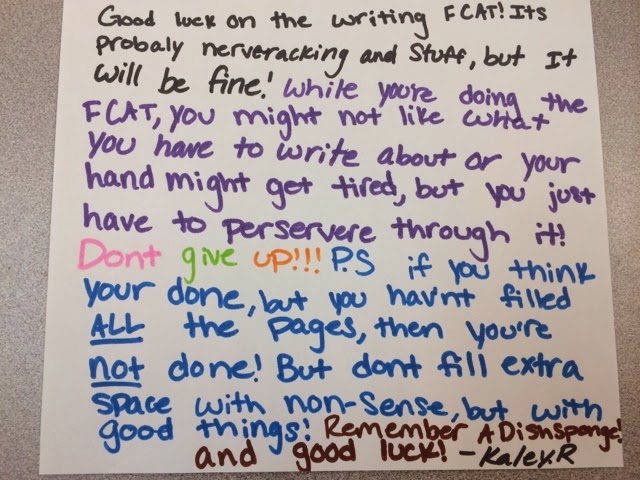 Good luck on the writing FCAT! Its
probaly nerveracking and stuff, but It
will be fine! While you're doing the
FCAT, you might not like what
you have to write about or your
hand might get tired, but you just
have to perservere through it!
Dont give up!!! P.S if you think
your done, but you hav'nt filled
ALL the pages, then you're
not done! But dont fill extra
space with non-sense, but with
good things! Remember A Dishsponge!
and good luck! -Kaley.R